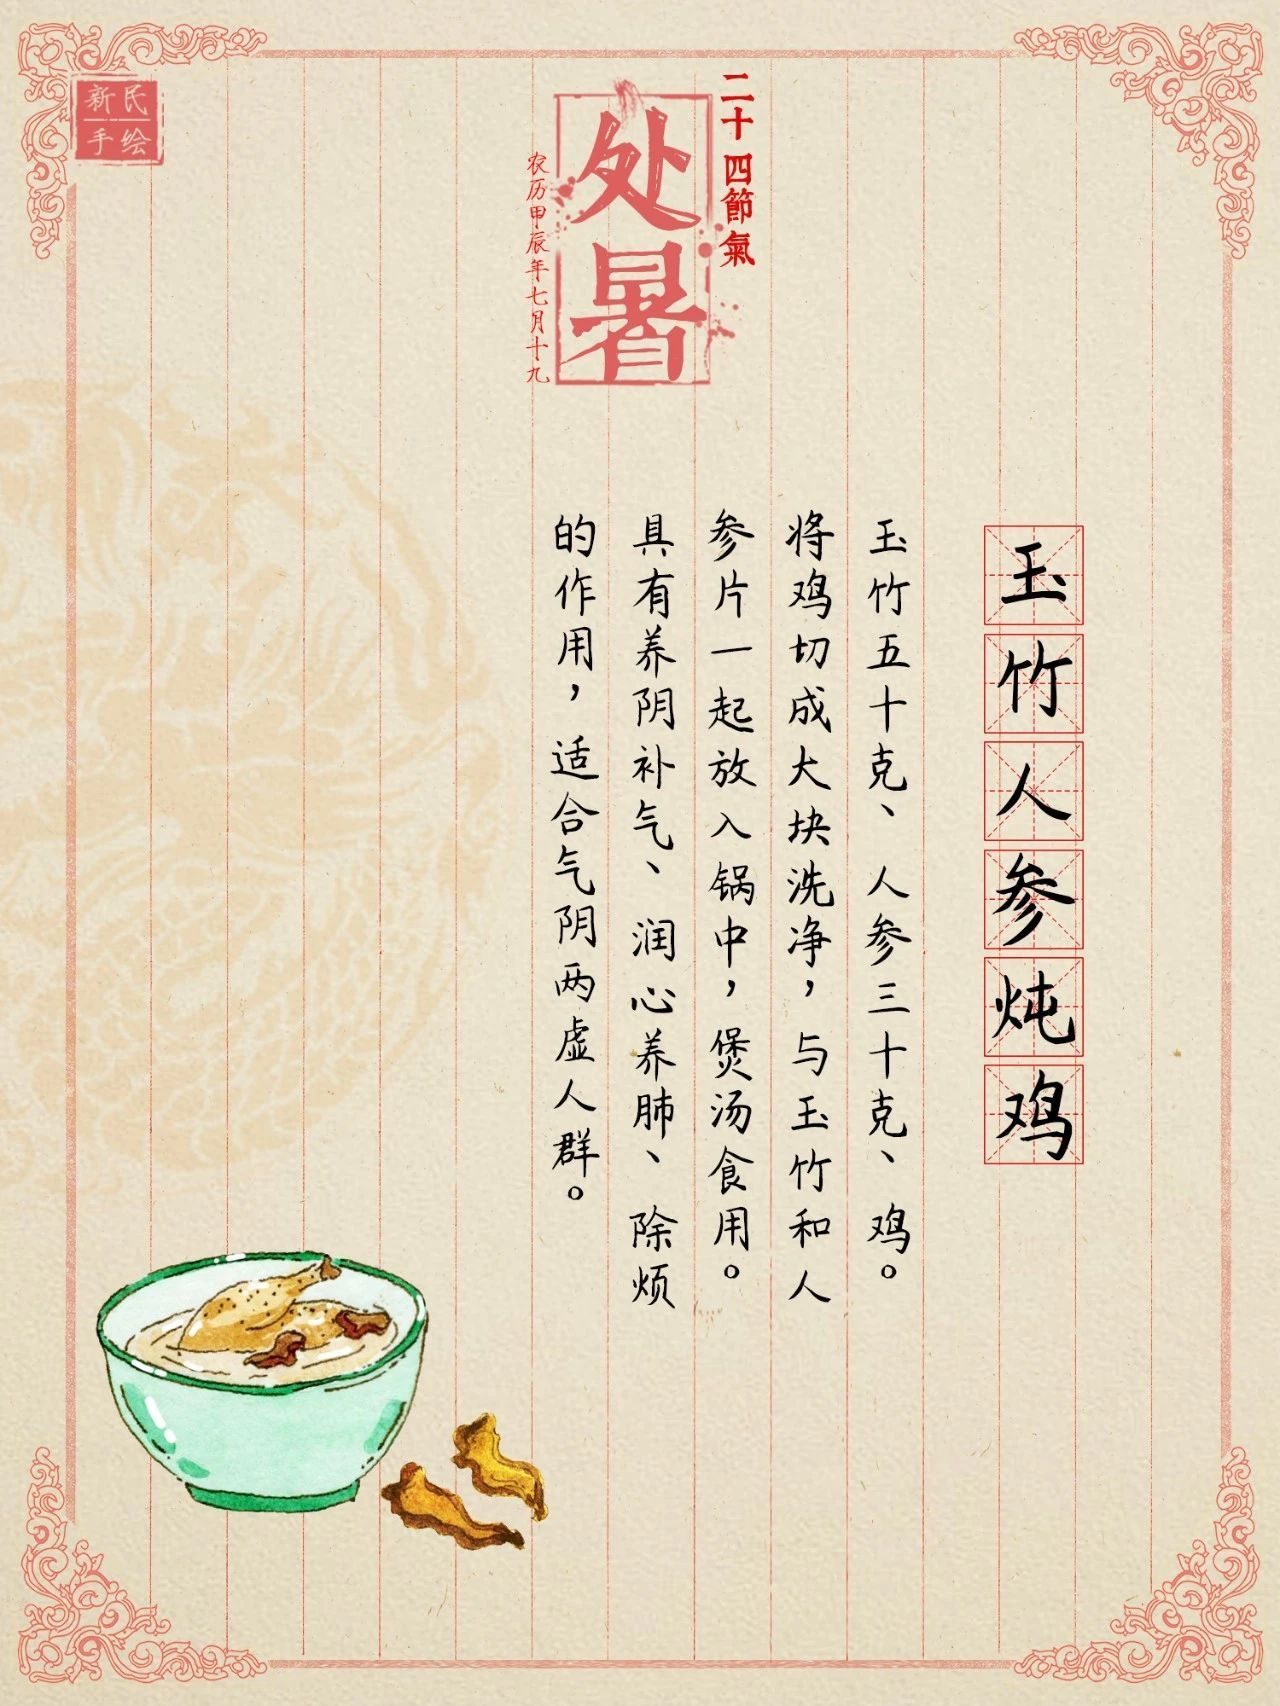 新民
手绘
二十四節氣
处暑
农历甲辰年七月十九
玉竹人参炖鸡
玉竹五十克、人参三十克、鸡。
将鸡切成大块洗净，与玉竹和人
参片一起放入锅中，煲汤食用。
具有养阴补气、润心养肺、除烦
的作用，适合气阴两虚人群。